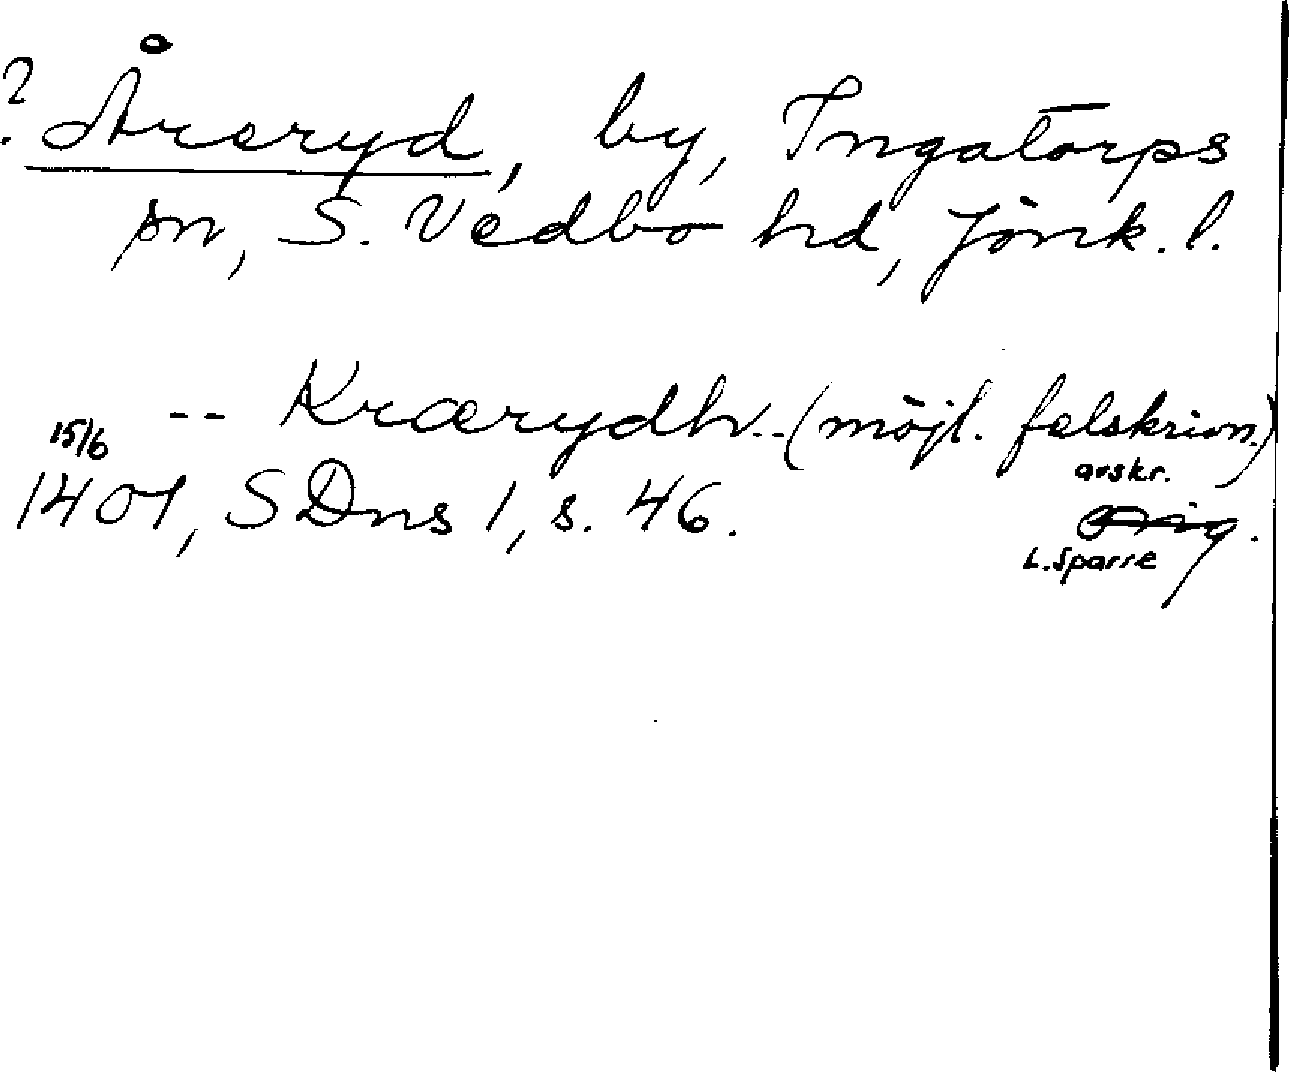 ? Åreryd, by, Ingatorps
sn, S. Vedbo hd, Jönk. l.
-- Krærydh -- (möjl. felskrivn.)
15/6
avskr.
1401, SDns 1, s. 46. orig.
L. Sparre